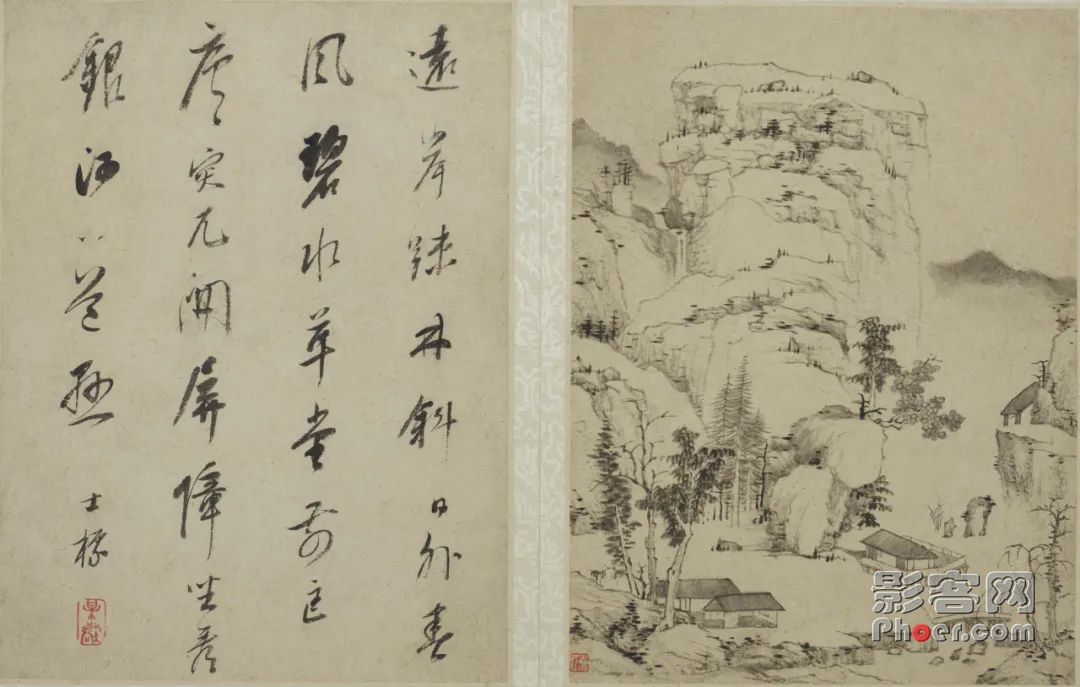 遠岸踈林斜日外春
風碧水草堂前匡
廬突兀開屏障坐看
銀河八道懸
士標
影客网
Phoer.com